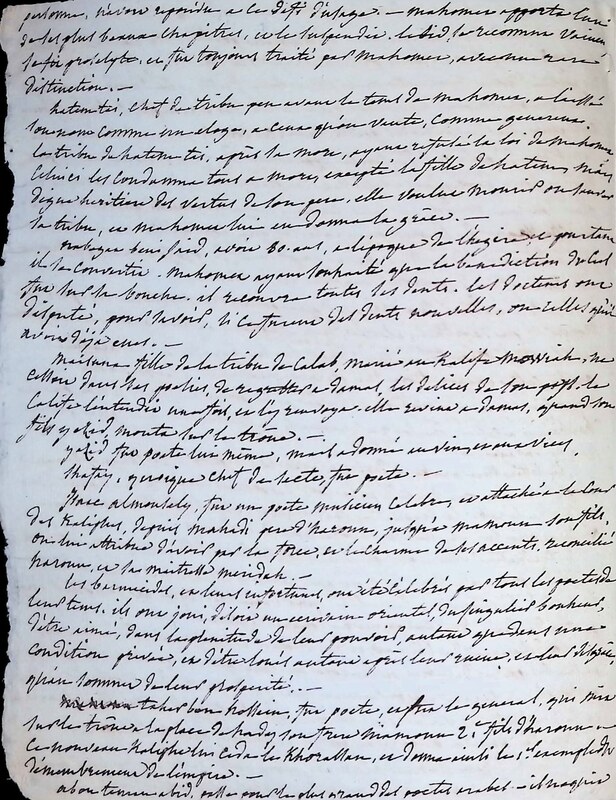 personne, n'avoit repondu a ce defi d'usage. — mahomet apporta l'un
de ses plus beaux chapitres, et le suspendit. lebid, se reconnut vaincu
se fit proselyte, et fut toujours traité par mahomet, avec une rare
distinction. —
hatem tai, chef de tribu peu avant le tems de mahomet, a laissé
son nom comme un eloge, a ceux qu'on vante, comme genereux.
la tribu de hatem tai, après sa mort, ayant refusé la loi de mahomet
celui ci les condamna tous a mort, excepté la fille de hatem, mais
digne heritiere des vertus de son pere, elle voulut mourir ou sauver
sa tribu, et mahomet lui en donna la grâce. —
beni said, avoit 80 ans, a l'epoque de l'hegire et pourtant
il se convertit. mahomet ayant souhaité que la benediction du ciel
fut sur sa bouche, il recouvra toutes ses dents. les docteurs ont
disputé, pour savoir, si ce furent des dents nouvelles, ou celles qu'il
avoit déjà eues. —
maisuna fille de la tribu de Calab, mariée au Kalife moaviah, ne
cessoit dans ses poesies, de regretter a damas, les delices de son pays. le
Calife l'entendit une fois, et l'y renvoya. elle revint a damas, quand son
fils yezid, monta sur le trône. —
yezid fut poete lui même, mais adonné au vin, et aux vices.
Shafey, quoique chef de secte, fut poete. —
Isaac almousely, fut un poete musicien celebre, et attaché a la cour
des Kaliphes, depuis mahadi pere d'haroun, jusqu'a mamoun son fils,
on lui attribue d'avoir par la force, et le charme de ses accents, reconcilié
haroun, et sa maitresse meridah. —
les barmecides, en leurs infortunes, ont été celebrés par tous les poetes de
leur tems. ils ont joui, disoit un ecrivain oriental, du singulier bonheur,
d'être aimés, dans la plenitude de leur pouvoir, autant que dans une
condition privée, et d'être loués autant après leur ruine, et leur disgrace
qu'au sommet de leur prosperité. —
taher ben hossein, fut poete, et fut le general, qui mit
sur le trône a la place de son frere mamoun 2e fils d'haroun —
ce nouveau Kaliphe lui ceda le Khorassan, et donna ainsi le 1er exemple du
démembrement de l'empire. —
abou temam abid, passe pour le plus grand des poetes arabes — il naquit